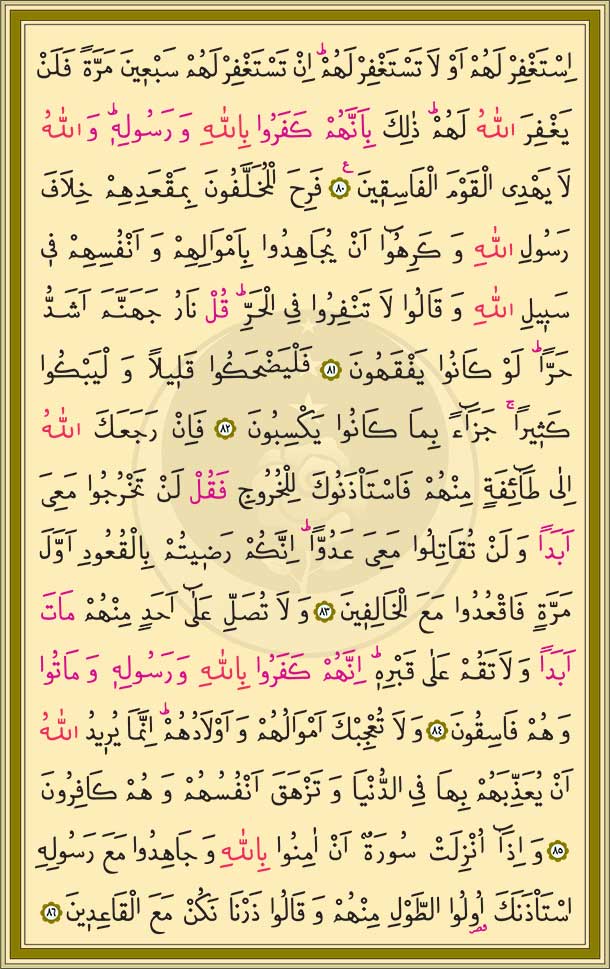 اِسْتَغْفِرْ لَهُمْ اَوْ لَا تَسْتَغْفِرْ لَهُمْۜ اِنْ تَسْتَغْفِرْ لَهُمْ سَبْع۪ينَ مَرَّةً فَلَنْ
يَغْفِرَ اللّٰهُ لَهُمْۜ ذٰلِكَ بِاَنَّهُمْ كَفَرُوا بِاللّٰهِ وَ رَسُولِه۪ۜ وَ اللّٰهُ
لَا يَهْدِى الْقَوْمَ الْفَاسِق۪ينَ ۟ ﴿٨٠﴾ فَرِحَ الْمُخَلَّفُونَ بِمَقْعَدِهِمْ خِلَافَ
رَسُولِ اللّٰهِ وَ كَرِهُٓوا اَنْ يُجَاهِدُوا بِاَمْوَالِهِمْ وَ اَنْفُسِهِمْ ف۪ى
سَب۪يلِ اللّٰهِ وَ قَالُوا لَا تَنْفِرُوا فِى الْحَرِّۜ قُلْ نَارُ جَهَنَّمَ اَشَدُّ
حَرًّاۜ لَوْ كَانُوا يَفْقَهُونَ ﴿٨١﴾ فَلْيَضْحَكُوا قَل۪يلًا وَ لْيَبْكُوا
كَث۪يرًاۚ جَزَٓاءً بِمَا كَانُوا يَكْسِبُونَ ﴿٨٢﴾ فَاِنْ رَجَعَكَ اللّٰهُ
اِلٰى طَٓائِفَةٍ مِنْهُمْ فَاسْتَاْذَنُوكَ لِلْخُرُوجِ فَقُلْ لَنْ تَخْرُجُوا مَعِىَ
اَبَدًا وَ لَنْ تُقَاتِلُوا مَعِىَ عَدُوًّاۜ اِنَّكُمْ رَض۪يتُمْ بِالْقُعُودِ اَوَّلَ
مَرَّةٍ فَاقْعُدُوا مَعَ الْخَالِف۪ينَ ﴿٨٣﴾ وَ لَا تُصَلِّ عَلٰٓى اَحَدٍ مِنْهُمْ مَاتَ
اَبَدًا وَ لَا تَقُمْ عَلٰى قَبْرِه۪ۜ اِنَّهُمْ كَفَرُوا بِاللّٰهِ وَ رَسُولِه۪ وَ مَاتُوا
وَ هُمْ فَاسِقُونَ ﴿٨٤﴾ وَ لَا تُعْجِبْكَ اَمْوَالُهُمْ وَ اَوْلَادُهُمْۜ اِنَّمَا يُر۪يدُ اللّٰهُ
اَنْ يُعَذِّبَهُمْ بِهَا فِى الدُّنْيَا وَ تَزْهَقَ اَنْفُسُهُمْ وَ هُمْ كَافِرُونَ
﴿٨٥﴾ وَ اِذَٓا اُنْزِلَتْ سُورَةٌ اَنْ اٰمِنُوا بِاللّٰهِ وَ جَاهِدُوا مَعَ رَسُولِهِ
اسْتَاْذَنَكَ اُو۬لُوا الطَّوْلِ مِنْهُمْ وَ قَالُوا ذَرْنَا نَكُنْ مَعَ الْقَاعِد۪ينَ ﴿٨٦﴾